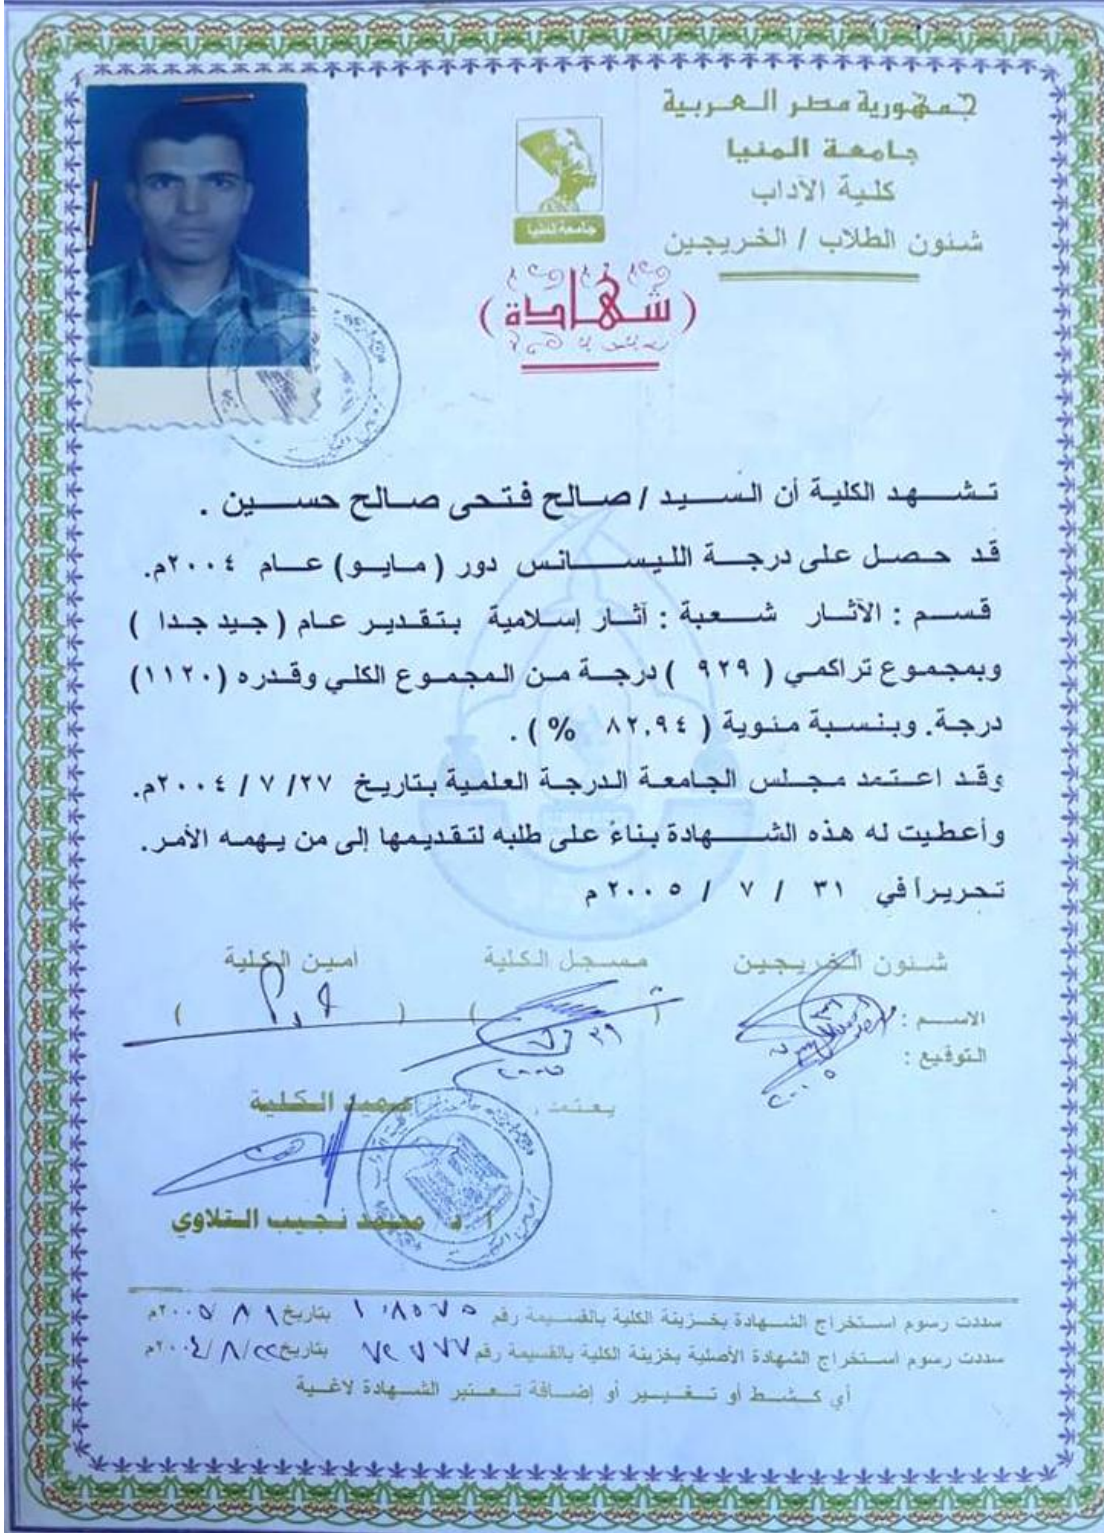 جمهورية مصر العربية
جامعة المنيا
كلية الآداب
شئون الطلاب / الخريجين
جامعة المنيا
( شهادة )
تشهد الكلية أن السيد / صالح فتحى صالح حسين .
قد حصل على درجة الليسانس دور ( مايو ) عام ٢٠٠٤م.
قسم : الآثار شعبة : آثار إسلامية بتقدير عام ( جيد جدا )
وبمجموع تراكمي ( ٩٢٩ ) درجة من المجموع الكلي وقدره (١١٢٠)
درجة. وبنسبة مئوية ( ٨٢,٩٤ % ) .
وقد اعتمد مجلس الجامعة الدرجة العلمية بتاريخ ٢٧/ ٧ / ٢٠٠٤م.
وأعطيت له هذه الشهادة بناءً على طلبه لتقديمها إلى من يهمه الأمر.
تحريراً في ٣١ / ٧ / ٢٠٠٥ م
شئون الخريجين مسجل الكلية أمين الكلية
الاسم : ( ) ( )
التوقيع :
يعتمد , عميد الكلية
أ د محمد نجيب التلاوي
سددت رسوم استخراج الشهادة بخزينة الكلية بالقسيمة رقم بتاريخ ٢٠٠٥م
سددت رسوم استخراج الشهادة الأصلية بخزينة الكلية بالقسيمة رقم بتاريخ ٢٠٠٤م
أي كشط أو تغيير أو إضافة تعتبر الشهادة لاغية